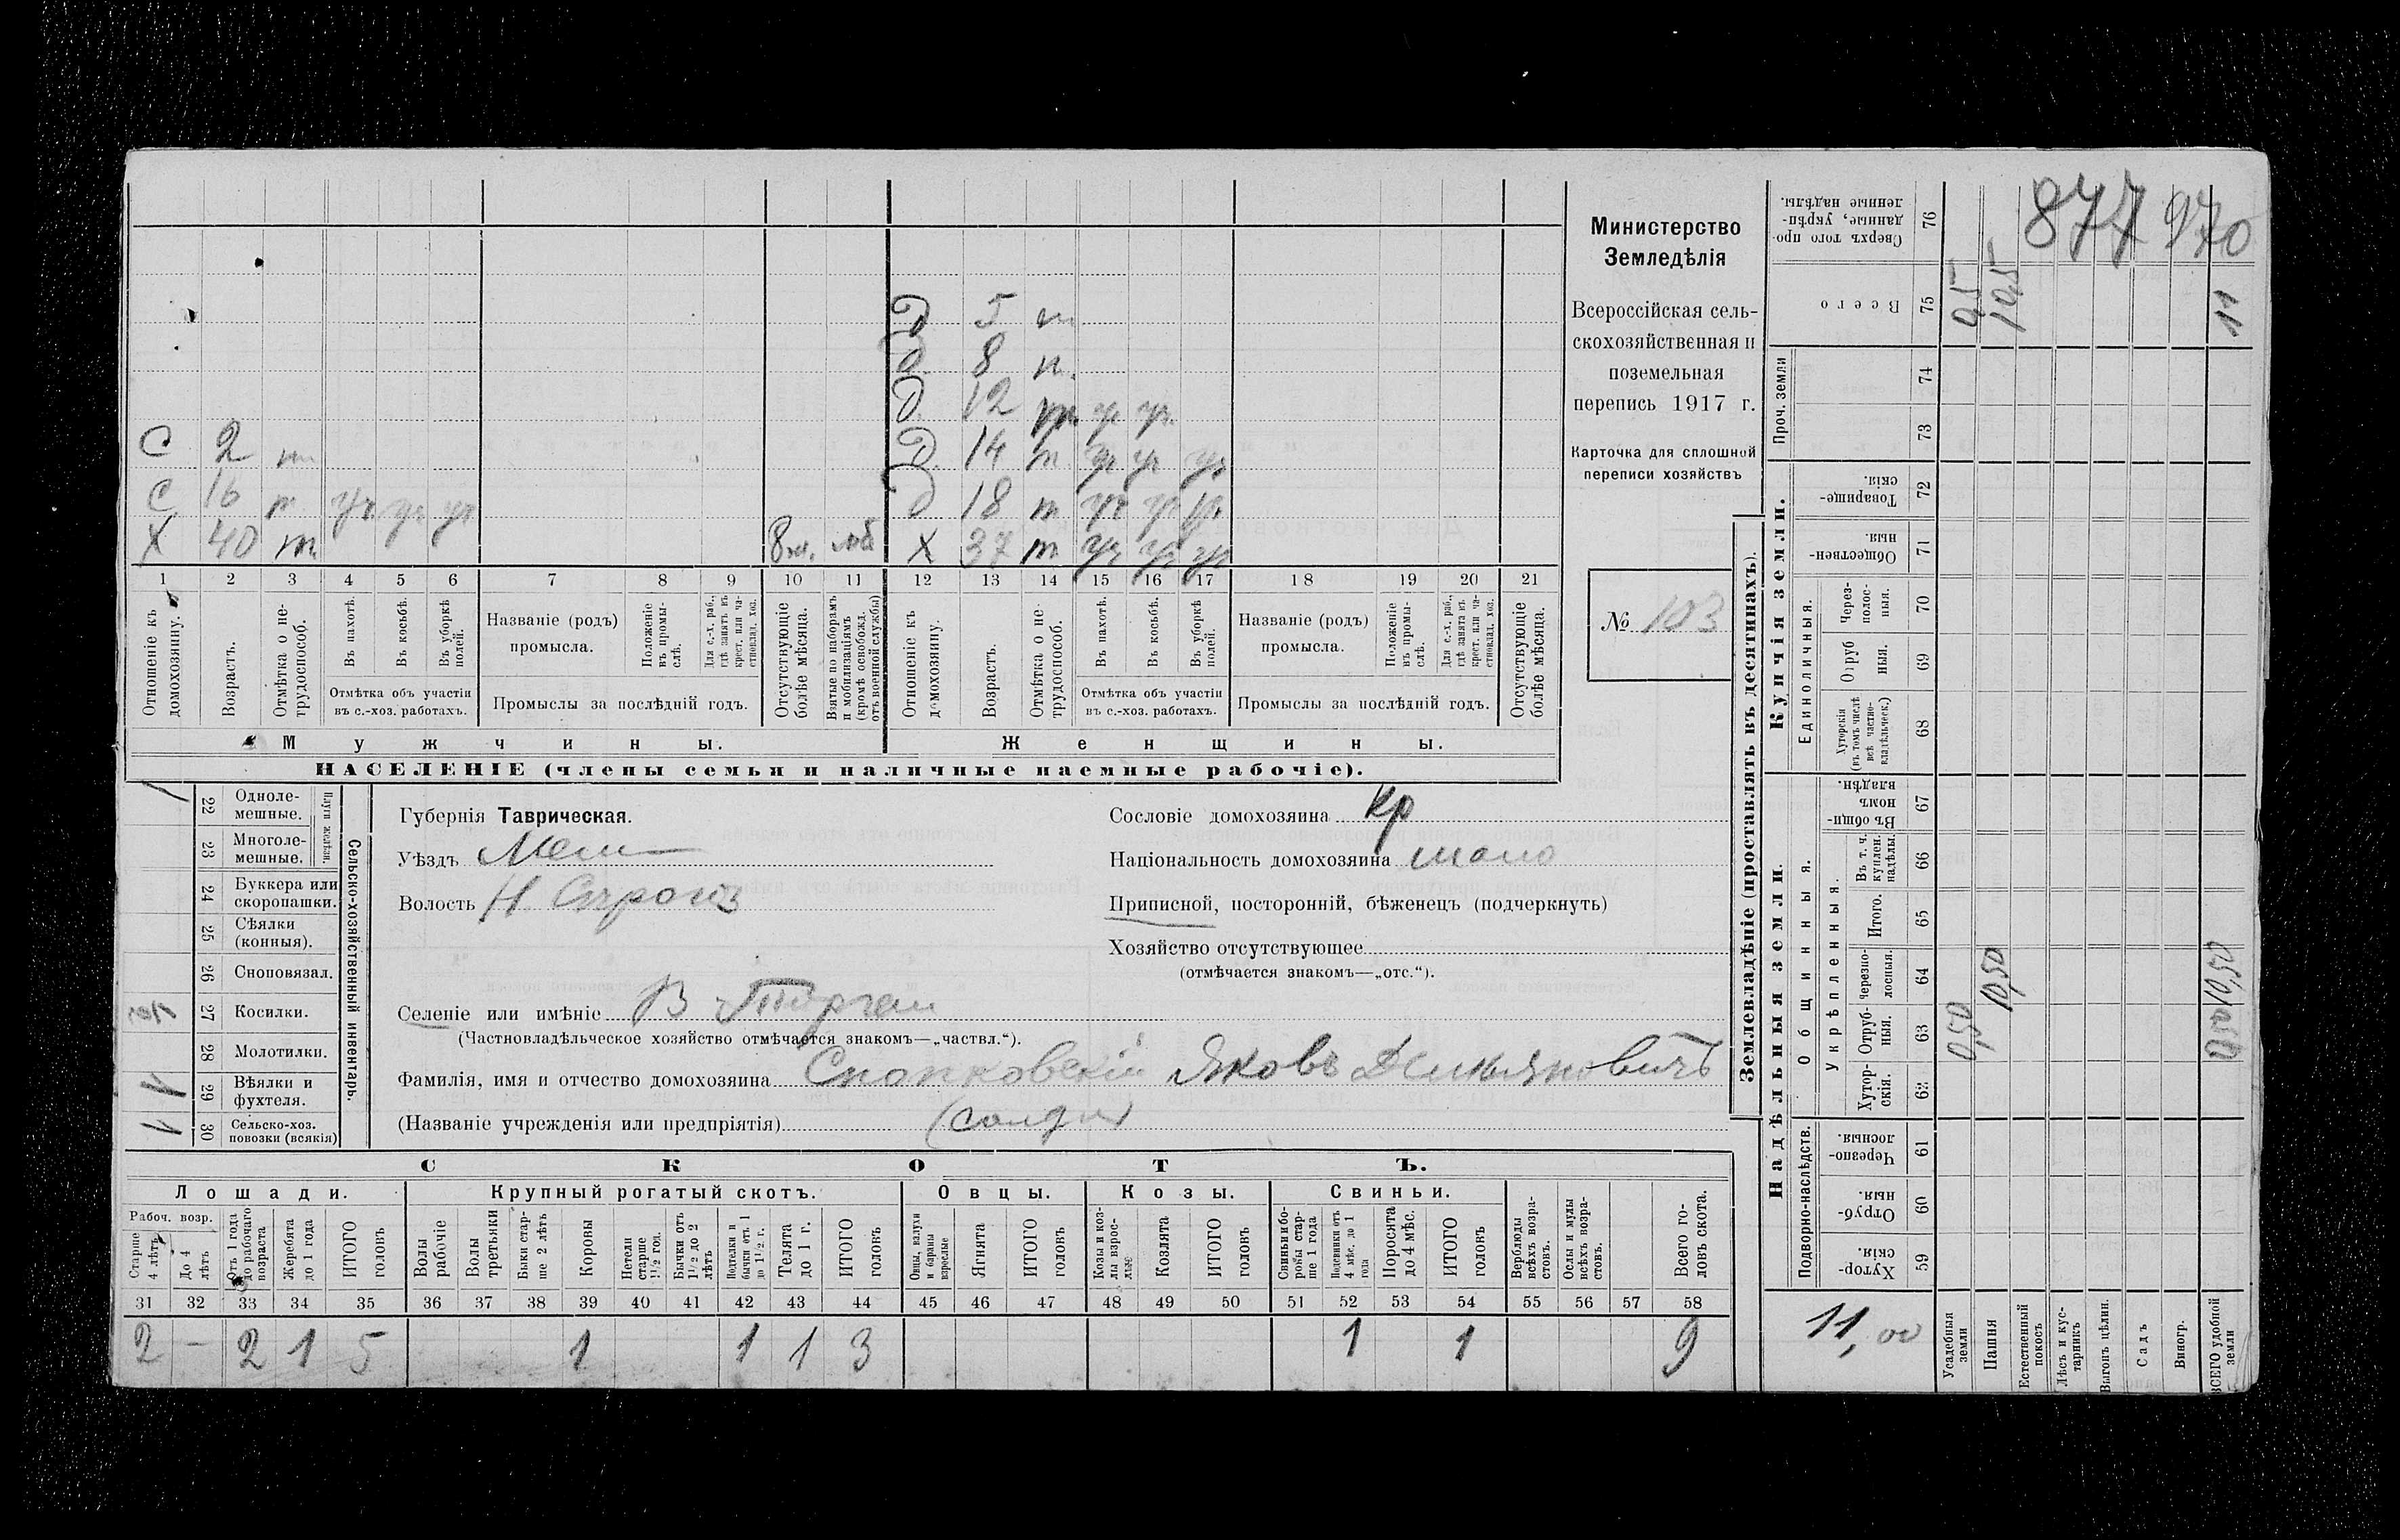 877 970
Министерство
Земледѣлія
Всероссійская сель-
скохозяйственная и
поземельная
перепись 1917 г.
Карточка для сплошной
переписи хозяйствъ
№ 103
Д 5 т
д 8 т.
Д 12 т уч уч
С 2 т Д 14 т уч уч уч
С 16 т уч уч уч д 18 т уч уч уч
Х 40 т 8 м. моб Х 37 т уч уч уч
1 2 3 4 5 6 7 8 9 10 11 12 13 14 15 16 17 18 19 20 21
Отношеніе къ домохозяину.
Возрастъ.
Отмѣтка о не-трудоспособ.
Въ пахотѣ.
Въ косьбѣ.
Въ уборкѣ полей.
Отмѣтка объ участіи
въ с.-хоз. работахъ.
Названіе (родъ)
промысла.
Положеніе въ промы-слѣ.
Для с.-х. раб., гдѣ занятъ въ крест. или ча-стновлад. хоз.
Промыслы за послѣдній годъ.
Отсутствующіе болѣе мѣсяца.
Взятые по наборамъ и мобилизаціямъ (кромѣ освобожд. отъ военной службы)
Отношеніе къ домохозяину.
Возрастъ.
Отмѣтка о не-трудоспособ.
Въ пахотѣ.
Въ косьбѣ.
Въ уборкѣ полей.
Отмѣтка объ участіи
въ с.-хоз. работахъ.
Названіе (родъ)
промысла.
Положеніе въ промы-слѣ.
Для с.-х. раб., гдѣ занята въ крест. или ча-стновлад. хоз.
Промыслы за послѣдній годъ.
Отсутствующіе болѣе мѣсяца.
Мужчины. Женщины.
НАСЕЛЕНІЕ (члены семьи и наличные наемные рабочіе).
Сельско-хозяйственный инвентарь.
Плуги желѣзн.
1 22 Одноле-мешные.
23 Многоле-мешные.
24 Буккера или скоропашки.
25 Сѣялки (конныя).
26 Сноповязал.
27 Косилки.
28 Молотилки.
1 29 Вѣялки и фухтеля.
30 Сельско-хоз. повозки (всякія)
Губернія Таврическая.
Уѣздъ Мели
Волость Н Строгоз
Сословіе домохозяина кр
Національность домохозяина мало
Приписной, посторонній, бѣженецъ (подчеркнуть)
Хозяйство отсутствующее
(отмѣчается знакомъ—„отс.“).
Селеніе или имѣніе В Торгаи
(Частновладѣльческое хозяйство отмѣчается знакомъ—„частвл.“).
Фамилія, имя и отчество домохозяина Яковъ Демьяновичъ
(Названіе учрежденія или предпріятія) (солдат)
СКОТЪ.
Лошади. Крупный рогатый скотъ. Овцы. Козы. Свиньи.
Рабоч. возр.
Старше 4 лѣтъ
До 4 лѣтъ
Отъ 1 года до рабочаго возраста
Жеребята до 1 года
ИТОГО головъ
Волы рабочіе
Волы третьяки
Быки стар-ше 2 лѣтъ
Коровы
Нетели старше 1½ год.
Бычки отъ 1½ до 2 лѣтъ
Подтелки и бычки отъ 1 до 1½ г.
Телята до 1 г.
ИТОГО головъ
Овцы, валухи и бараны взрослые
Ягнята
ИТОГО головъ
Козы и коз-лы взрос-лые
Козлята
ИТОГО головъ
Свиньи и бо-ровы стар-ше 1 года
Подсвинки отъ 4 мѣс. до 1 года
Поросята до 4 мѣс.
ИТОГО головъ
Верблюды всѣхъ возра-стовъ.
Ослы и мулы всѣхъ возра-стовъ.
Всего го-ловъ скота.
31 32 33 34 35 36 37 38 39 40 41 42 43 44 45 46 47 48 49 50 51 52 53 54 55 56 57 58
2 — 2 1 5 1 1 1 3 1 1 9
Землевладѣніе (проставлять въ десятинахъ).
Сверхъ того про-данные, укрѣп-ленные надѣлы. 76
Всего 75 0,5 10,5 11
Проч. земли 74 73
Купчія земли.
Товарище-скія. 72
Обществен-ныя. 71
Единоличныя.
Через-полос-ныя. 70
Отруб-ныя. 69
Хуторскія (въ томъ числѣ всѣ частно-владѣльческ.) 68
Надѣльныя земли.
Общинныя.
Въ общин-номъ владѣн. 67
Укрѣпленныя.
Въ т. ч. куплен. надѣлы. 66
Итого. 65
Черезпо-лосныя. 64 10,50 10,50
Отруб-ныя. 63 0,50 0,50
Хутор-скія. 62
Подворно-наслѣдств.
Черезпо-лосныя. 61
Отруб-ныя. 60
Хутор-скія. 59
11,00
Усадебныя земли
Пашня
Естественный покосъ
Лѣсъ и кус-тарникъ
Выгонъ цѣлин.
Садъ
Виногр.
ВСЕГО удобной земли